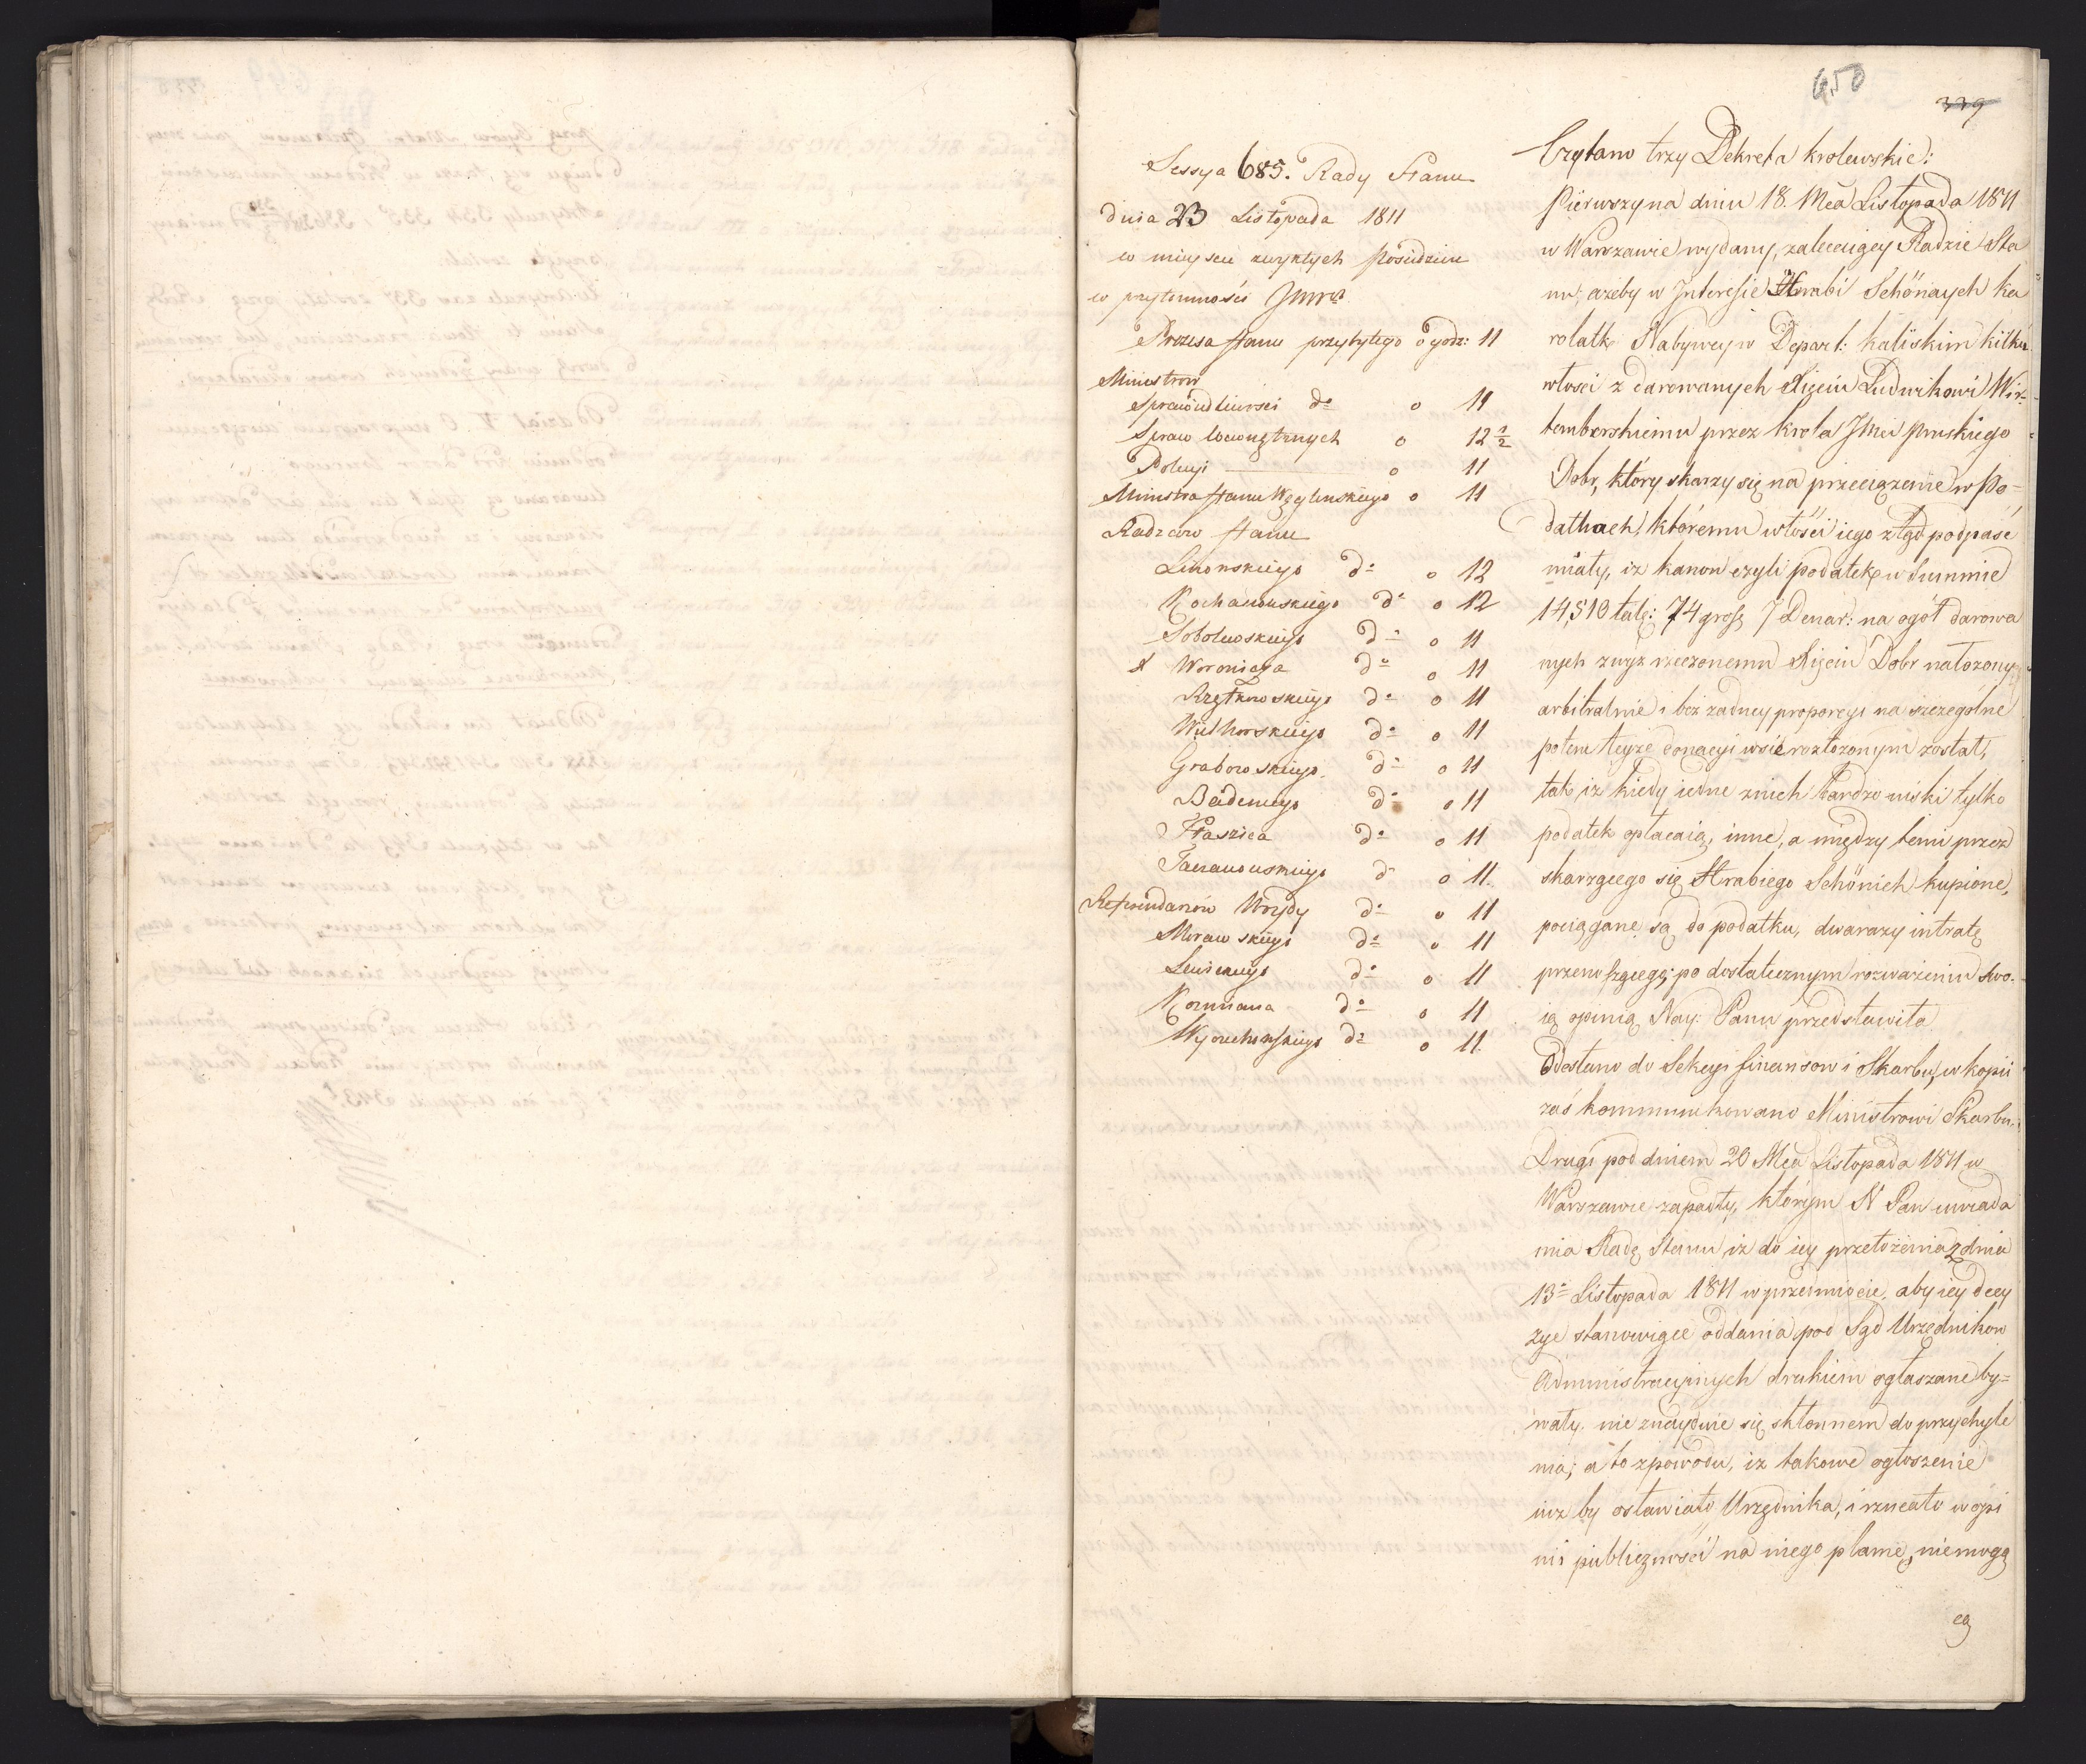 450
339
Sessya 685. Rady Stanu
dnia 23 Listopada 1811
w mieyscu zwykłych Posiedzeń
w przytomności Jmw
Prezesa stanu przybyłego o godz: 11
Ministrow
Sprawiedliwości do o 11
Spraw Wewnętrznych o 12 1/2
Policyi o 11
Ministra stanu Węglenskiego o 11
Radzcow stanu
Linowskiego do o 12
Kochanowskiego do o 12
Sobolewskiego do o 11
X Woronicza do o 11
Rzętkowskiego do o 11
Wielhorskiego do o 11
Grabowskiego do o 11
Badeniego do o 11
Staszica do o 11
Tarnowskiego do o 11.
Referendarzów Woydy do o 11
Morawskiego do o 11
Lewickiego do o 11
Kozmiana do o 11
Wyczechowskiego do o 11.
Czytano trzy Dekreta krolewskie:
Pierwszy na dniu 18. Mca Listopada 1811
w Warszawie wydany, zalecaiący Radzie Sta
nu, ażeby w Interesie Hrabi Schönaych ka
rolatk Nabywcy w Depart: kaliskim kilku
włości z darowanych Xięciu Ludwikowi Wir-
temberskiemu przez krola JMci pruskiego
Dobr, który skarzy się na przeciążenie w Po-
datkach, któremu włości iego ztąd podpaść
miały, iz kanon czyli podatek w Summie
14,510 tal: 74 grosz 7 Denar: na ogół darowa
nych zwyz rzeczonemu Xięciu Dobr nałozony,
arbitralnie i bez zadney proporcyi na szczególne
potem teyze donacyi wsie rozłozonym został,
tak iz kiedy iedne z nich bardzo niski tylko
podatek opłacaią, inne, a między temi przez
skarzącego się Hrabiego Schönich kupione,
pociągane są do podatku, dwarazy intratę
przenoszącego; po dostatecznym rozważeniu swo-
ią opinią Nay: Panu przedstawiła.
Odesłano do Sekcyi finansow i Skarbu, w kopii
zaś kommunikowano Ministrowi Skarbu.
Drugi pod dniem 20 Mca Listopada 1811 w
Warszawie zapadły, którym N Pan uwiada
mia Radę Stanu, iz do iey przełożenia z dnia
13o Listopada 1811 w przedmiocie, aby iey decy
zye stanowiące oddania pod Sąd Urzędnikow
Administracyinych drukiem ogłaszane by=
wały. nie znayduie się skłonnem do przychyle
nia; a to z powodu, iz takowe ogłoszenie
iuz by osławiało Urzędnika, i rzucało w opi
nii publiczności na niego plamę, niemogą
cą